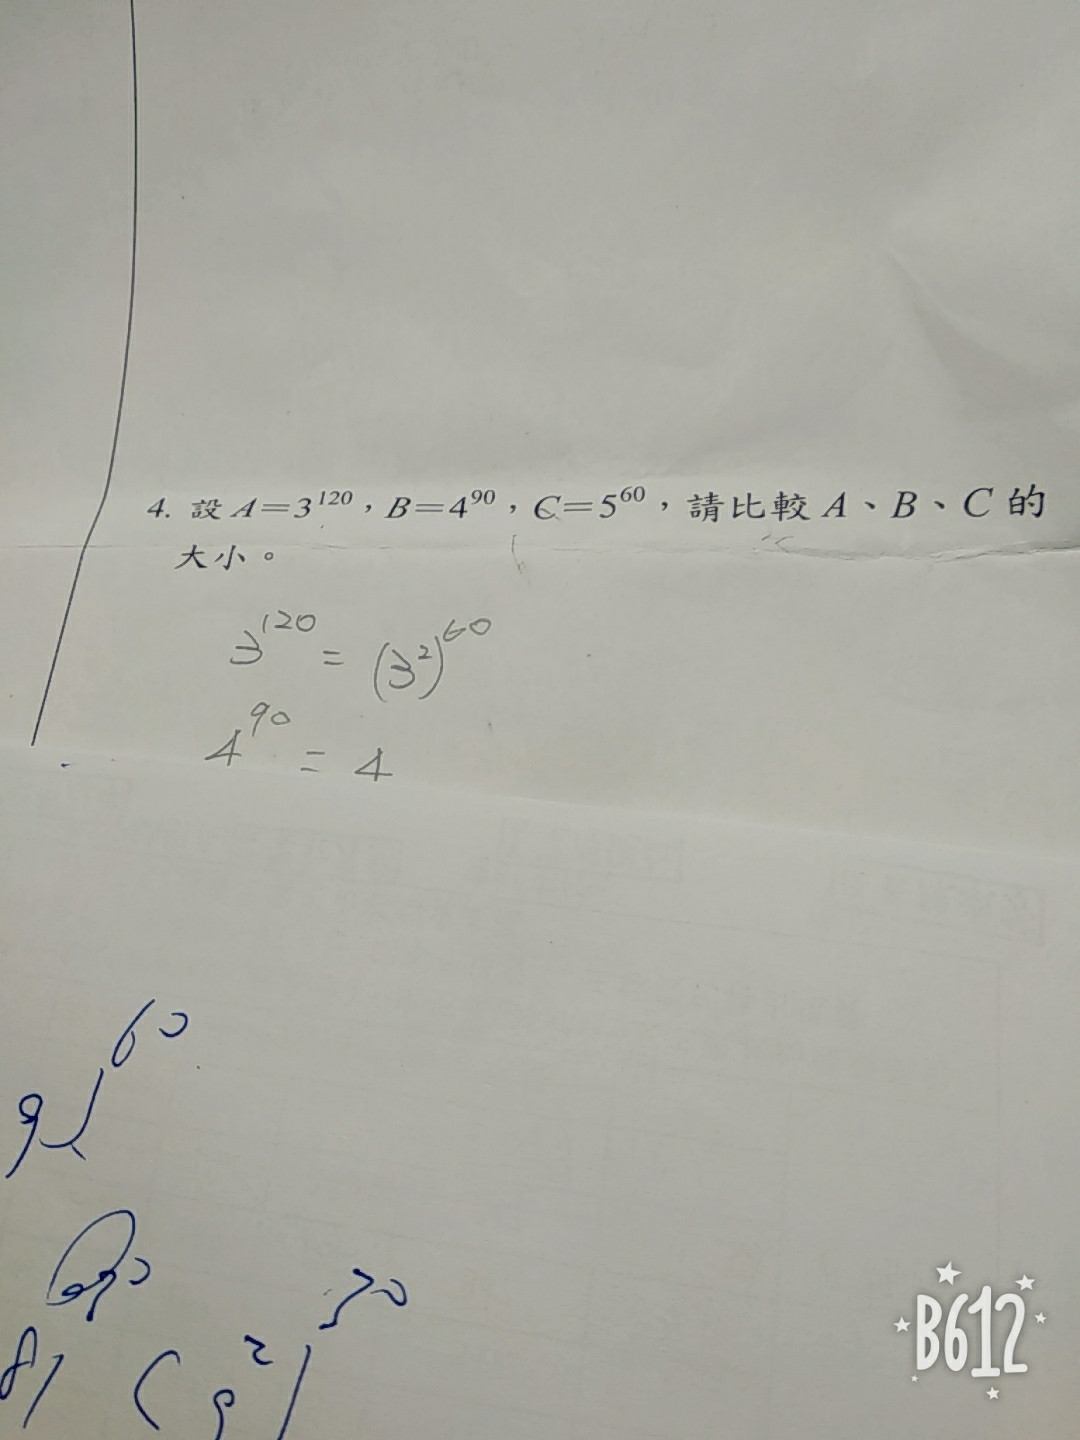 4. 設A=3¹²⁰，B=4⁹⁰，C=5⁶⁰，請比較A、B、C的
大小。
3¹²⁰ = (3²)⁶⁰
4⁹⁰ = 4
9)⁶⁰
81 (9²)³⁰
B612